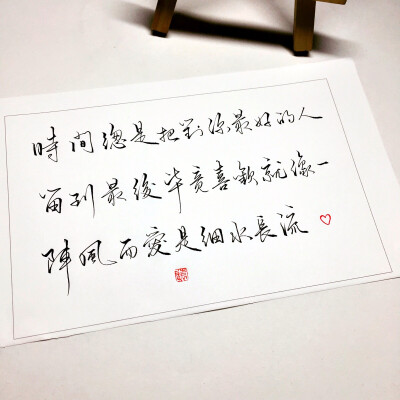 時間總是把對你最好的人
留到最後毕竟喜歡就像一
陣風而愛是细水長流